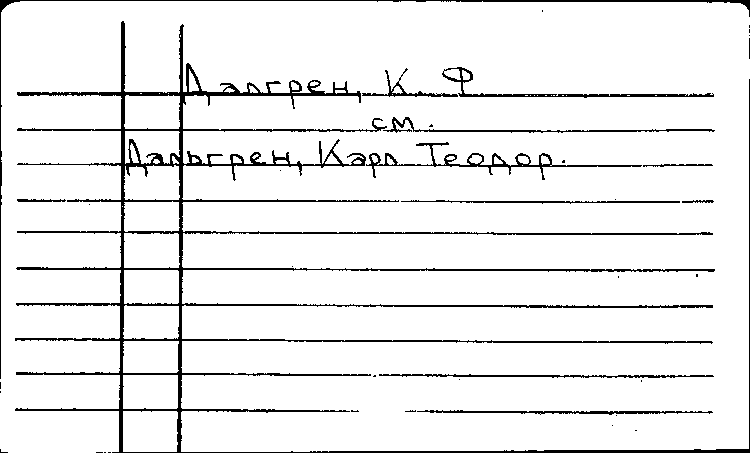 Далгрен, К. Ф
см.
Дальгрен, Карл Теодор.